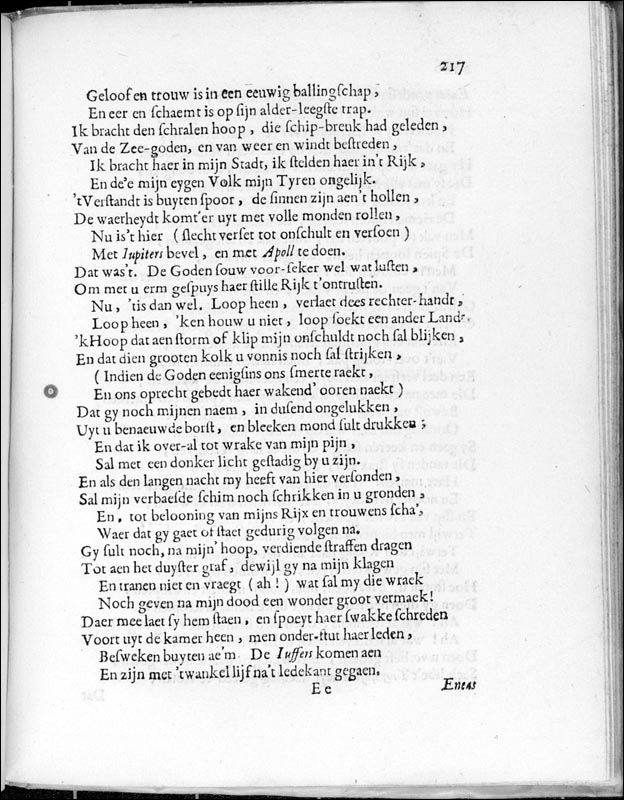 217
Geloof en trouw is in een eeuwig ballingſchap,
En eer en ſchaemt is op ſijn alder-leegſte trap.
Ik bracht den ſchralen hoop, die ſchip-breuk had geleden,
Van de Zee-goden, en van weer en windt beſtreden,
Ik bracht haer in mijn Stadt, ik ſtelden haer in't Rijk,
En de'e mijn eygen Volk mijn Tyren ongelijk.
'tVerſtandt is buyten ſpoor, de ſinnen zijn aen't hollen,
De waerheydt komt'er uyt met volle monden rollen,
Nu is't hier (ſlecht verſet tot onſchult en verſoen)
Met Iupiters bevel, en met Apoll te doen.
Dat was't. De Goden ſouw voor-ſeker wel wat luſten,
Om met u erm geſpuys haer ſtille Rijk t'ontruſten.
Nu, 'tis dan wel. Loop heen, verlaet dees rechter-handt,
Loop heen, 'ken houw u niet, loop ſoekt een ander Landt.
'kHoop dat aen ſtorm of klip mijn onſchuldt noch ſal blijken,
En dat dien grooten kolk u vonnis noch ſal ſtrijken,
(Indien de Goden eenigſins ons ſmerte raekt,
En ons oprecht gebedt haer wakend' ooren naekt)
Dat gy noch mijnen naem, in duſend ongelukken,
Uyt u benaeuwde borſt, en bleeken mond ſult drukken;
En dat ik over-al tot wrake van mijn pijn,
Sal met een donker licht geſtadig by u zijn.
En als den langen nacht my heeft van hier verſonden,
Sal mijn verbaeſde ſchim noch ſchrikken in u gronden,
En, tot belooning van mijns Rijx en trouwens ſcha',
Waer dat gy gaet of ſtaet gedurig volgen na.
Gy ſult noch, na mijn' hoop, verdiende ſtraffen dragen
Tot aen het duyſter graf, dewijl gy na mijn klagen
En tranen niet en vraegt (ah!) wat ſal my die wraek
Noch geven na mijn dood een wonder groot vermaek!
Daer mee laet ſy hem ſtaen, en ſpoeyt haer ſwakke ſchreden
Voort uyt de kamer heen, men onder-ſtut haer leden,
Beſweken buyten ae'm. De Iuffers komen aen
En zijn met 'twankel lijf na't ledekant gegaen.
E e Eneas